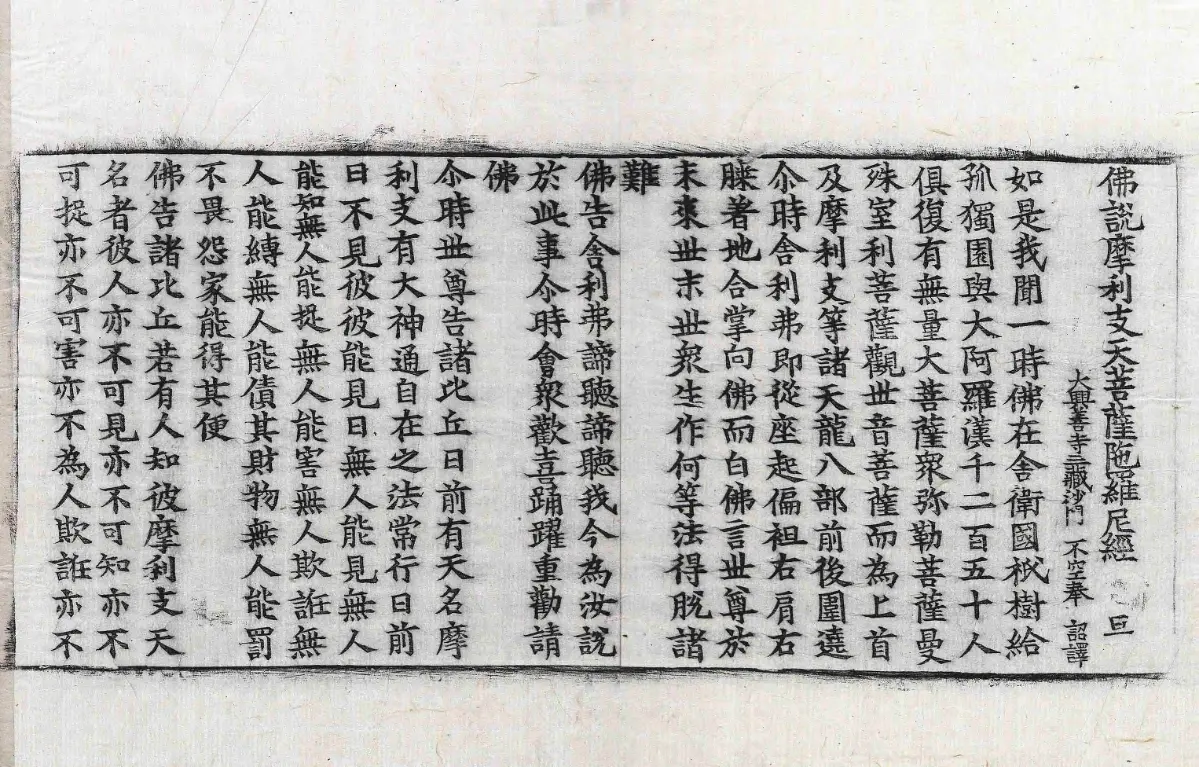 佛說摩利支天菩薩陁羅尼經 亘
大興善寺三藏沙門 不空奉 詔譯
如是我聞一時佛在舍衛國祇樹給
孤獨園與大阿羅漢千二百五十人
俱復有無量大菩薩衆弥勒菩薩曼
殊室利菩薩觀世音菩薩而為上首
及摩利支等諸天龍八部前後圍遶
尒時舍利弗即從座起偏袒右肩右
膝著地合掌向佛而白佛言世尊於
末來世末世衆生作何等法得脫諸
難
佛告舍利弗諦聽諦聽我今為汝說
於此事尒時會衆歡喜踊躍重勸請
佛
尒時世尊告諸比丘日前有天名摩
利支有大神通自在之法常行日前
日不見彼彼能見日無人能見無人
能知無人能捉無人能害無人欺誑無
人能縛無人能債其財物無人能罰
不畏怨家能得其便
佛告諸比丘若有人知彼摩利支天
名者彼人亦不可見亦不可知亦不
可捉亦不可害亦不為人欺誑亦不